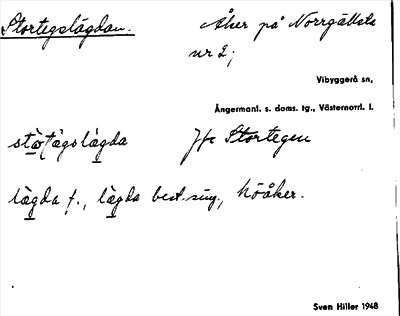 Stortegslägdan. Åker på Norrgällsta
nr 2;
Vibyggerå sn,
Ångermanl. s. doms. tg., Västernorrl. l.
Jfr Stortegen
lägda f., lägda best. sing., höåker.
Sven Hiller 1948